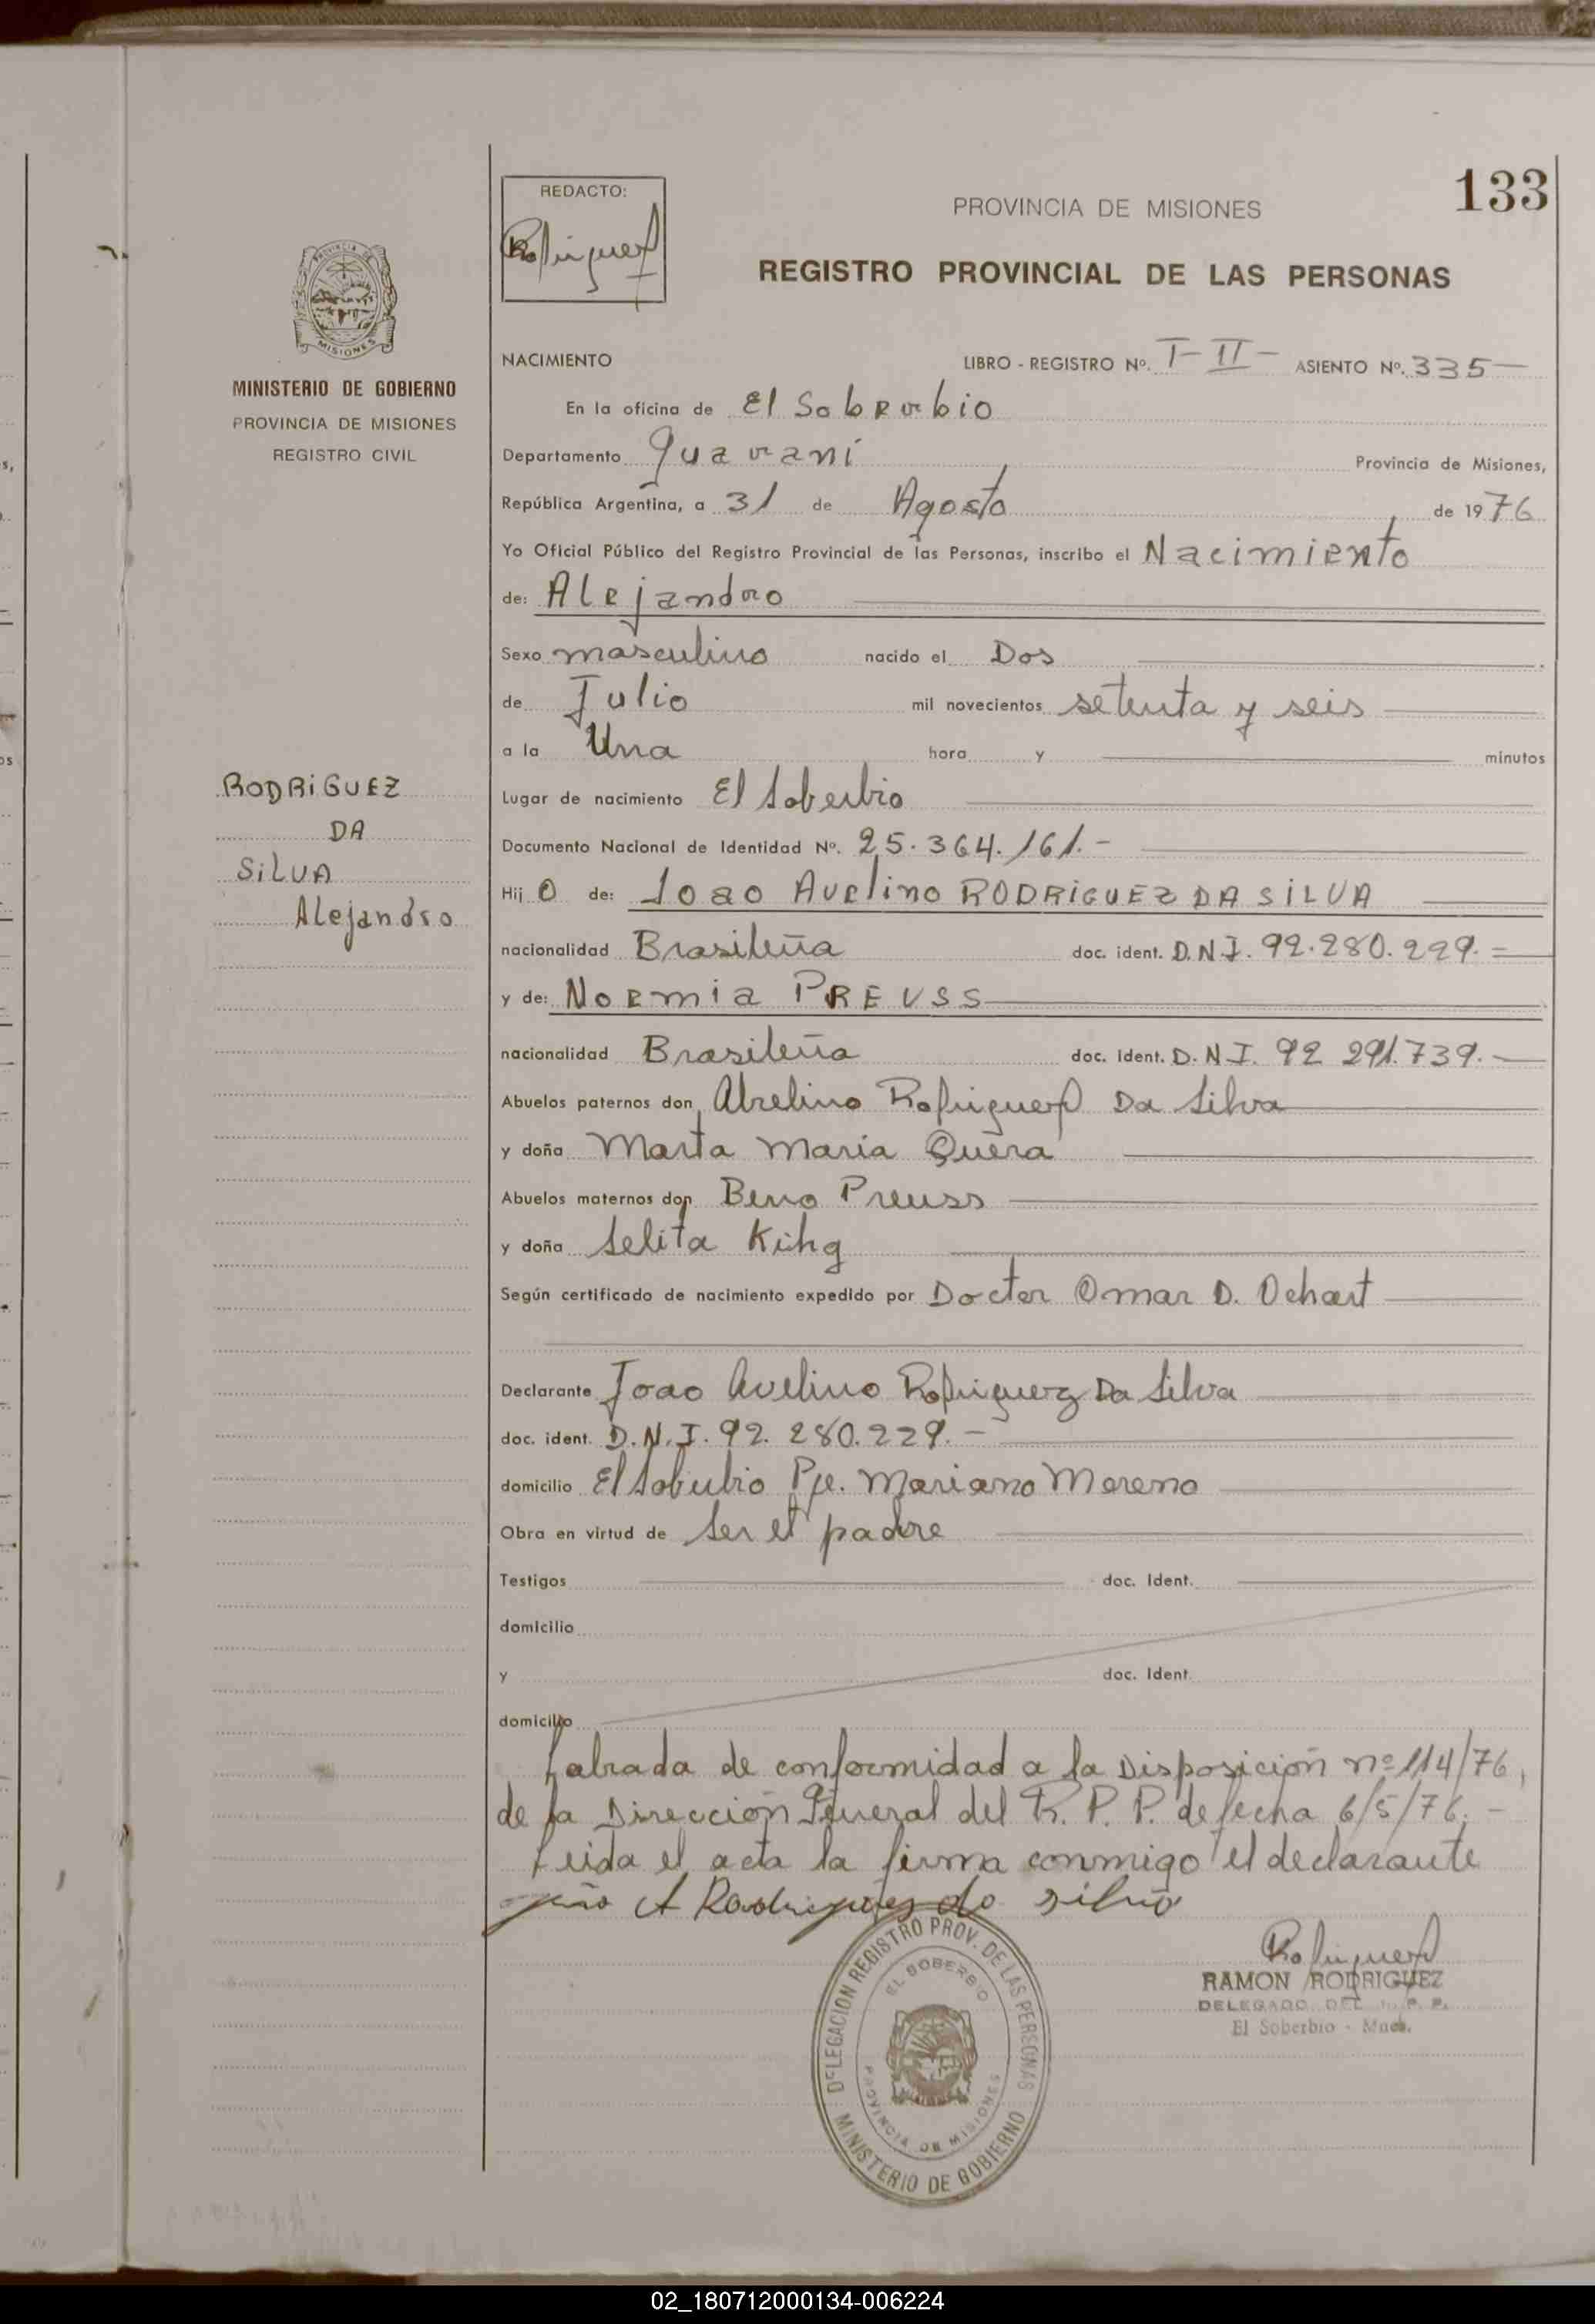 133
REDACTO:
Rodriguez
PROVINCIA DE MISIONES
REGISTRO PROVINCIAL DE LAS PERSONAS
PROVINCIA DE
MISIONES
MINISTERIO DE GOBIERNO
PROVINCIA DE MISIONES
REGISTRO CIVIL
NACIMIENTO LIBRO - REGISTRO Nº. T- II - ASIENTO Nº. 335 —
En la oficina de El Soberbio
Departamento Guaraní Provincia de Misiones,
República Argentina, a 31 de Agosto de 1976
Yo Oficial Público del Registro Provincial de las Personas, inscribo el Nacimiento
de: Alejandro
Sexo masculino nacido el Dos
de Julio mil novecientos setenta y seis
a la Una hora y minutos
Lugar de nacimiento El Soberbio
Documento Nacional de Identidad Nº. 25.364.161.-
RODRIGUEZ
DA
SILVA
Alejandro
Hij o de: Joao Avelino RODRIGUEZ DA SILVA
nacionalidad Brasileña doc. ident. D.N.I. 92.280.229.=
y de: Noemia PREUSS
nacionalidad Brasileña doc. Ident. D.N.I. 92 291.739.-
Abuelos paternos don Abelino Rodriguez Da Silva
y doña Marta Maria Quera
Abuelos maternos don Beno Preuss
y doña Selita Kihg
Según certificado de nacimiento expedido por Docter Omar D. Ochart
Declarante Joao Avelino Rodriguez Da Silva
doc. ident. D.N.I. 92. 280.229.-
domicilio El Soberbio Pje. Mariano Moreno
Obra en virtud de ser el padre
Testigos doc. Ident.
domicilio
y doc. Ident.
domicilio
Labrada de conformidad a la Disposición nº 114/76,
de la Dirección General del R.P.P. de fecha 6/5/76.-
Leida el acta la firma conmigo el declarante
A Rodrigues da silva
DELEGACION REGISTRO PROV. DE LAS PERSONAS
EL SOBERBIO
PROVINCIA DE MISIONES
MINISTERIO DE GOBIERNO
Rodriguez
RAMON RODRIGUEZ
DELEGADO DEL R. P. P.
El Soberbio - Mnes.
02_180712000134-006224